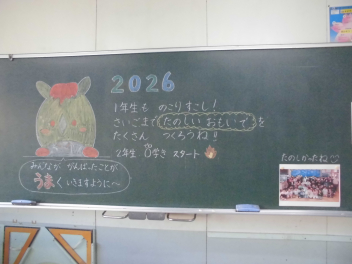 2026
1年生も のこりすこし!
さいごまで たのしい おもいで を
たくさん つくろうね!
2年生 0学き スタート
みんなが がんばったことが
うまくいきますように〜
たのしかったね